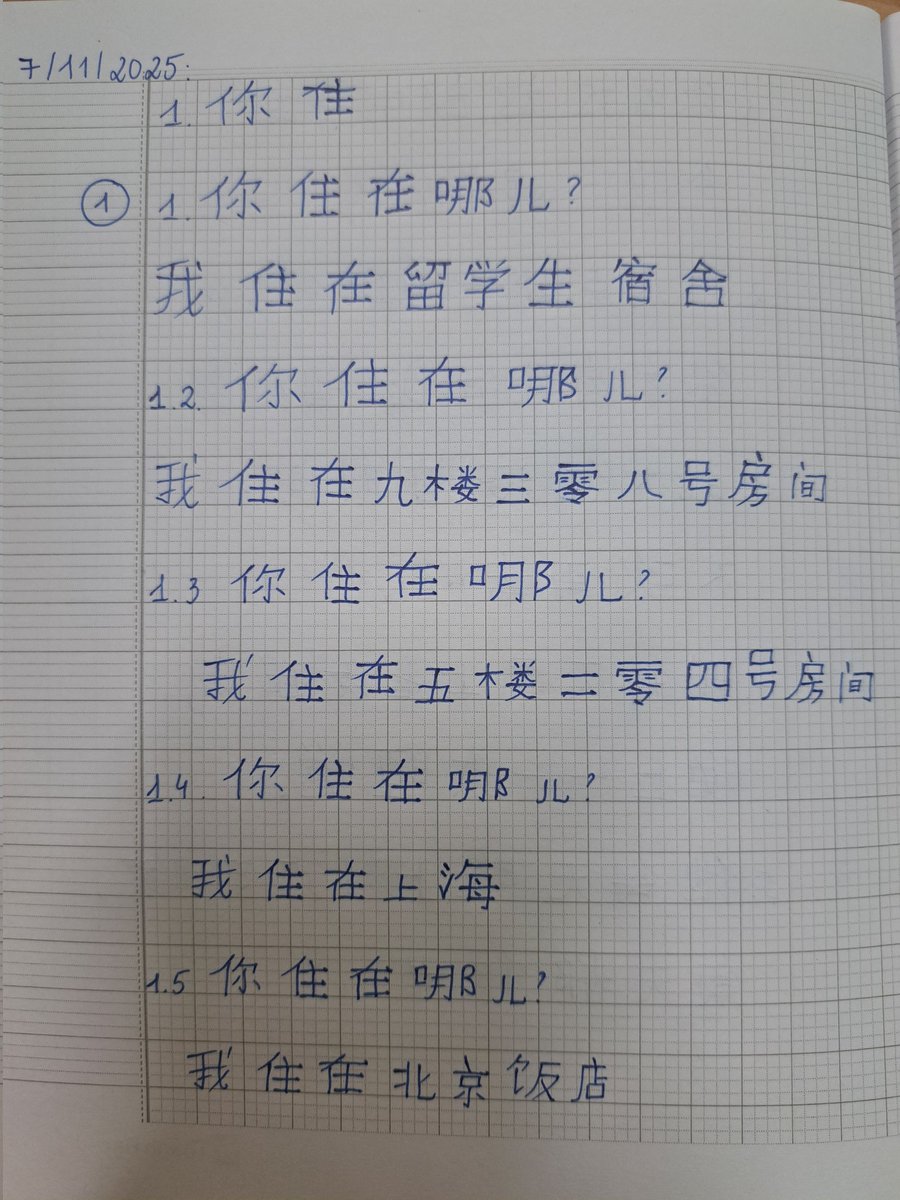 7/11/2025:
1. 你住
① 1. 你住在哪儿?
我住在留学生宿舍
1.2. 你住在哪儿?
我住在九楼三零八号房间
1.3 你住在哪儿?
我住在五楼二零四号房间
1.4. 你住在哪儿?
我住在上海
1.5 你住在哪儿?
我住在北京饭店